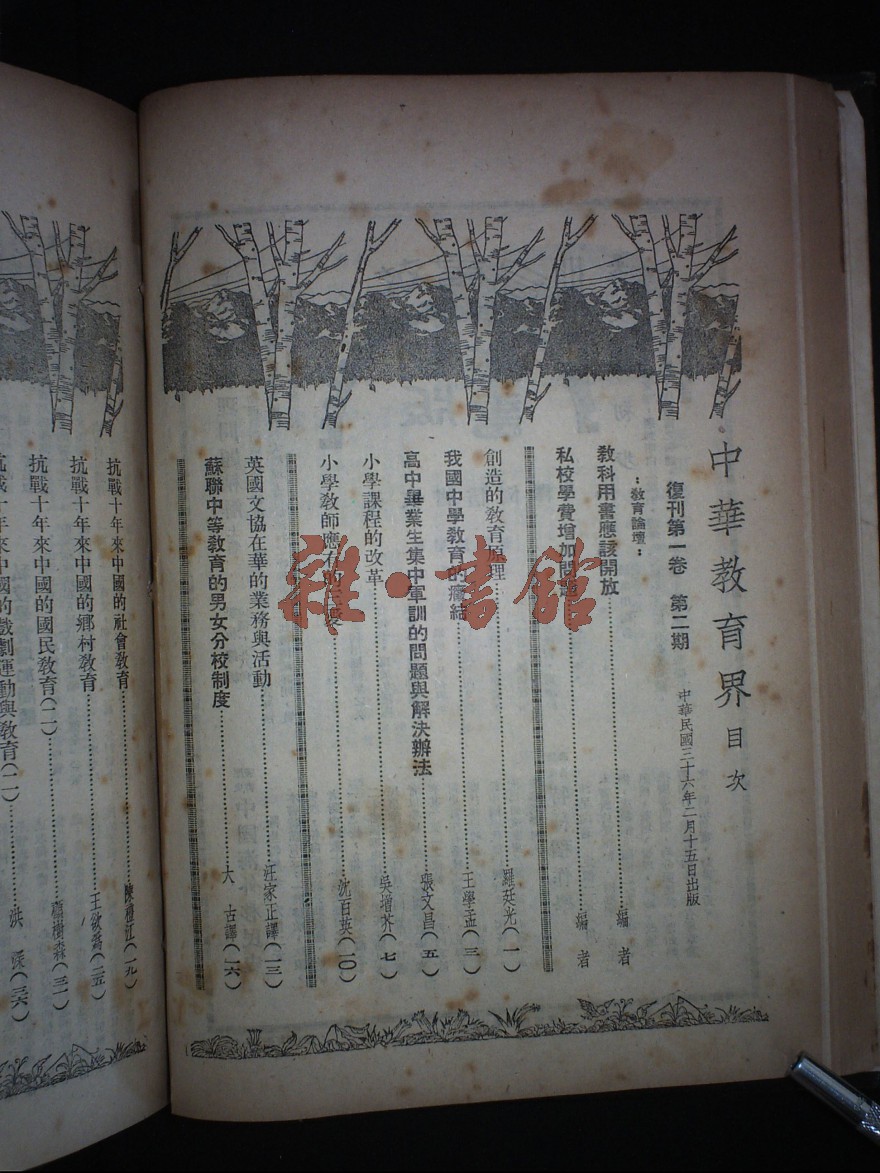 中華教育界 目次
復刊第一卷 第二期
中華民國三十六年二月十五日出版
：教育論壇：
教科用書應該開放………編者
私校學費增加問題………編者
創造的教育原理………羅廷光(一)
我國中學教育的癥結………王學孟(三)
高中畢業生集中軍訓的問題與解決辦法………張文昌(五)
小學課程的改革………吳增芥(七)
小學教師應有的………沈百英(一〇)
英國文協在華的業務與活動………汪家正譯(一三)
蘇聯中等教育的男女分校制度………大古譯(一六)
抗戰十年來中國的社會教育………陳禮江(一九)
抗戰十年來中國的鄉村教育………(二五)
抗戰十年來中國的國民教育(二)………樹森(三一)
抗戰十年來中國的戲劇運動與教育(二)………洪深(三六)
雜·書館